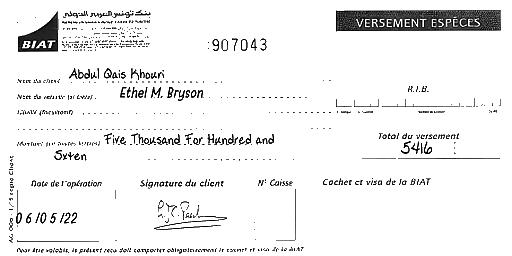 بنك تونس العربي الدولي
BIAT
907043
VERSEMENT ESPÈCES
Nom du client Abdul Qais Khouri
Nom du remettant (si tiers) Ethel M. Bryson
R.I.B.
Libellé (facultatif)
Montant (en toutes lettres) Five Thousand For Hundred and
Sxten
Total du versement
5416
Date de l'opération
Signature du client
N° Caisse
Cachet et visa de la BIAT
06/05/22
Pour être valable, le présent reçu doit comporter obligatoirement le cachet et visa de la BIAT